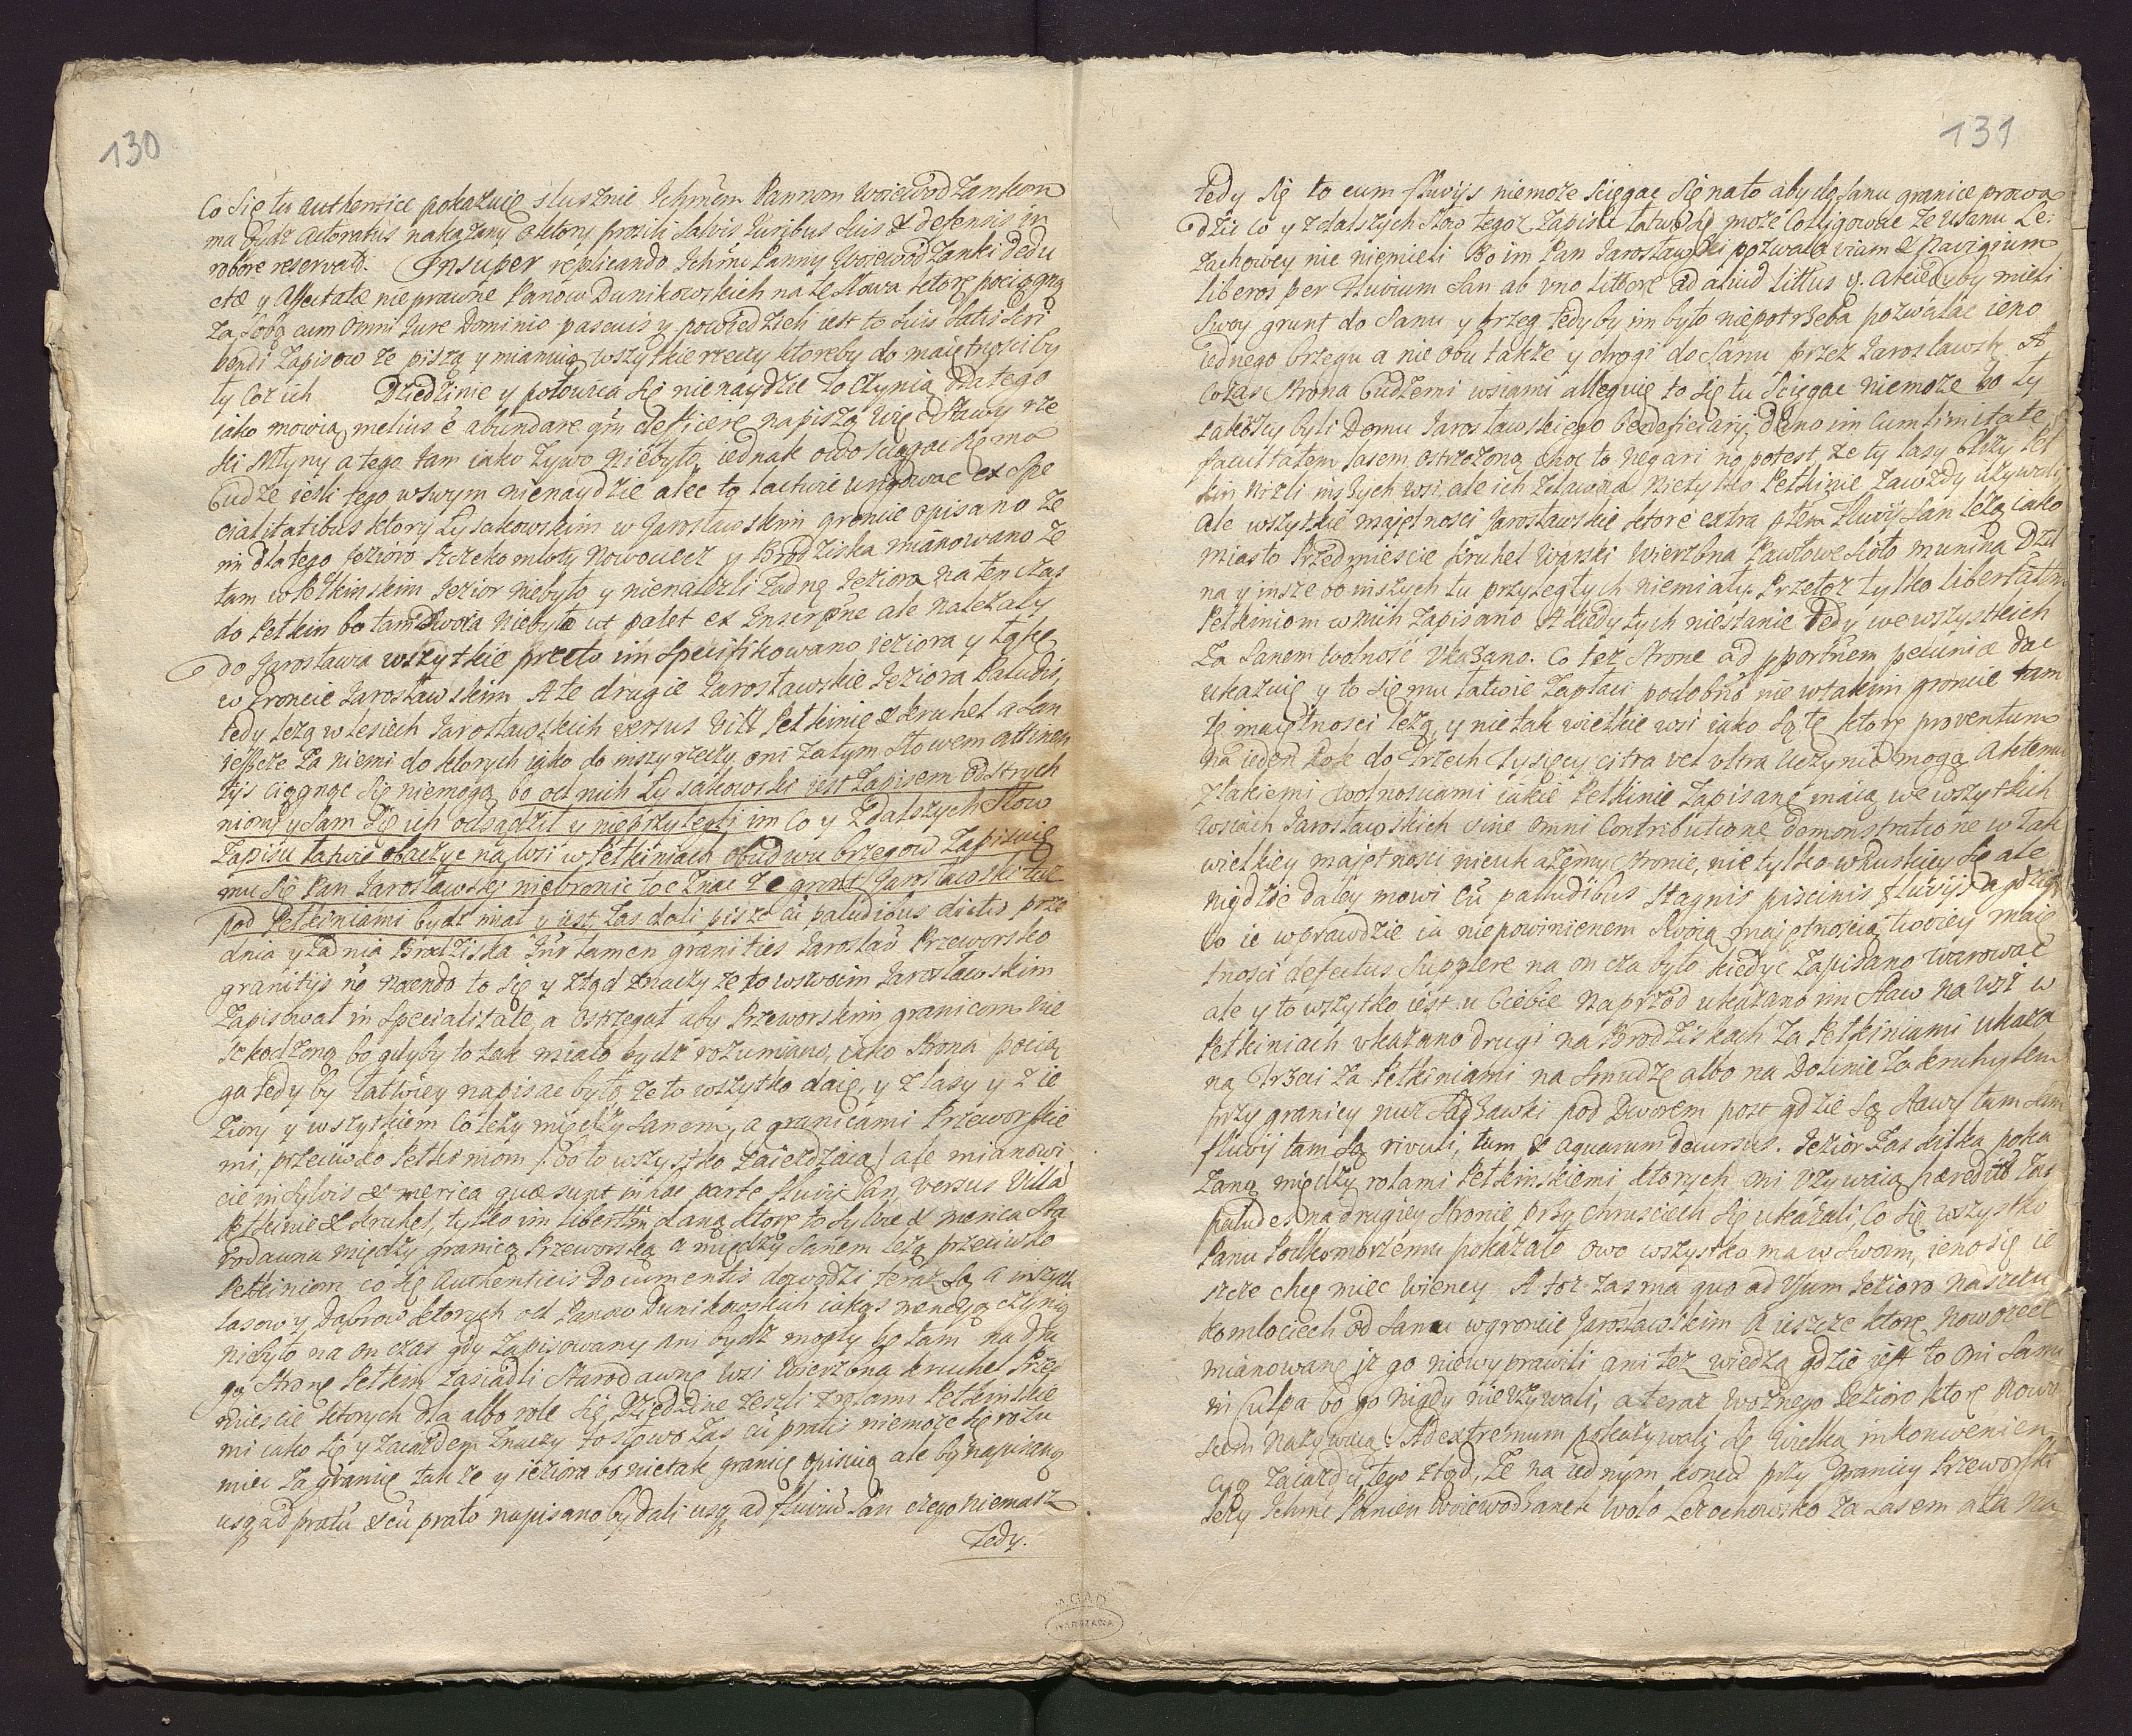 130
Co Się tu authentice pokazuie słusznie Ichmém Pannom Woiewodzankom
ma bydz actoratus nakazany o ktory prosili salvis Iuribus suis & defensis in
robore reservatis. Insuper replicando Ichmć Panny Woiewodzanki dedu
ctæ y Affectatæ nieprawne Panow Dunikowskich na te słowa ktore pociągaią
za sobą cum omni Iure Dominio pascuis y powiedzieli iest to suis
bendi Zapisow że piszą y mianuią wszytkie rzeczy ktoreby do maiętności by
ty Coż ich Dziedzinie y połowica się nienaydzie to Czynią dla tego
iako mowią melius ẽ abundare qm̃ deficere napiszą więc stawy rze
ki Młyny a tego tam iako żywo niebyło, iednak owo sciągać się ma
Cudze iesli tego wswym nienaydzie ależ to łatwie ex Spe
cialitatibus ktory Łysakowskim w Jarosławskim groncie opisano że
im dla tego Jezioro Szczekomłoty Nowociecz y Brodziska mianowano że
tam w Pełkinskim Jezior niebyło y nienalezli żadnę Jeziora na ten czas
do Pełkin bo tam Dwora niebyło ut patet ex Inscrp̃ne ale należały
do Jarosławia wszytkie przeto im Specifikowano ieziora y łąkę
w Groncie Jarosławskim. A te drugie Jarosławskie Jeziora Paludis,
tedy leżą w lesiech Jarosławskich versus Vill Pełkinie & Kruhel a San
ieszcze za niemi do ktorych iako do inszy rzeczy oni za tym słowem attinen
tijs ciągnąc się niemogą bo od nich Łysakowski iest Zapisem odstrych
niony y sam się ich odsądził y nieprzylegli im Co y z dalszych słow
Zapisu łatwie obaczyc na wsi w Pełkiniach obudwu brzegow Zapisuie
mu się Pan Jarosławski niebronic toć znac że gront Jarosławski tuż
pod Pełkiniami bydź miał y iest, zas dali pisze cũ paludibus dictis prze
dnia y zadnia Brodziska Jur tamen granities Jarosław Przeworsko
granitijs nõ nocendo to się y ztąd znaczy że to wswoim Jarosławskim
Zapisował in Specialitate, a ostrzegał aby Przeworskim granicom nie
szkodzono bo gdyby to tak miało bydź rozumiano, iako strona pocią
ga tedy by łatwiey napisac było, że to wszytko daię, y z lasy y z ie
ziory y wszytkiem Co leży między Sanem, a granicami Przeworskie
mi, przeciwko Pełkiniom /: bo to wszystko zaieżdzaią / ale mianowi
cie in Sylvis & merica quæ sunt in hac parte fluvij San, versus Villã
Pełkinie & Kruhel, tylko im libertm̃ daną ktore to Sylvæ & merica sta
rodawna między granicą Przeworską a między Sanem leżą przeciwko
Pełkiniom co się Authenticis Documentis dowodzi teraz są a inszych
lasow y Dąbrow ktorych od Panow Dunikowskich iakąs mencyą czynią
niebyło na on czas gdy Zapisowany ani bydź mogły bo tam na dru
gą stronę Pełkin zasiadli starodawne wsi Wierzbna Kruhel Prze
dmieście ktorych dla albo role się, Dziedzine zeszli z rolami Pełkinskie
mi iako się y zaiazdem znaczy to słowo zas cũ pratis niemoże się rozu
miec za granię tak że y ieziora bo nietak granicę opisuią ale by napisano
usq ad pratũ & cũ prato napisano by dali usq ad fluviũ San czego niemasz
Tedy.
131
tedy się to cum fluvijs niemoże sciągac się na to aby do Sanu granice prowa
dził co y z dalszych słow tegoż Zapisu łatwo się może Colligowac że u Sanu Ze.
zachowey nic niemieli Bo im Pan Jarosławski pozwala viam & Navigium
liberos per Fluvium San ab uno littore ad aliud littus y. A kiedyby mieli
swoy grunt do Sanu y brzeg tedy by im było niepotrzeba pozwalac ieno
iednego brzegu a nie obu także y drogi do Sanu przez Jarosławsk. A
Cozas strona Cudzemi wsiami alleguie to się tu sciągac niemoże bo Ły
sakowscy byli Domu Jarosławskiego benedeficiarij, dano im Cum limitate
facultatem lasem ostrzeżoną choc to negari nõ potest, że ty lasy bliży Peł
kin niżli inszych wsi, ale ich zdawna nietylko Pełkinie zawżdy używali
ale wszytkie maiętności Jarosławskie ktore extra ptem Fluvij San leżą iako
miasto Przedmieście Kruhel Wąrski Wierzbna Pawłowe Sioło Munina Dzi
na y insze bo inszych tu przyległych niemiały. Przetoż tylko libertatm̃
Pełkiniom w nich Zapisano A kiedy tych niestanie Tedy we wszystkich
za Sanem wolność vkazano. Co też strone ad pportñem pecuniæ dac
ukazuię y to się mu łatwie zapłaci podobno nie wtakim groncie tam
te maiętności leżą, y nie tak wielkie wsi iako są te ktore proventum
na ieden Rok do Trzech Tysięcy citra vel ultra uczynic mogą A ktemu
z takiemi wolnościami iakie Pełkinie Zapisane maią, we wszytkich
wsiach Jarosławskich sine omni Contributione demonstratione w tak
wielkiey maiętności nieukażemy stronie, nie tylko w Ruskiey się ale
nigdzie daley mowi cũ paludibus stagnis piscinis fluvijs a gdzież
to ie wprawdzie ia niepowinienem Swoią maiętnością twoiey maię
tności defectus supplere na on cza było kiedyc Zapisano warowac
ale y to wszytko iest u Ciebie naprzod ukazano im staw na wsi w
Pełkiniach vkazano drugi na Brodziskach za Pełkiniami ukaza
na trzeci za Pełkiniami na Smudze albo na Dolinie za Kruhylem
przy granicy nuż Sadzawki pod Dworem post gdzie są stawy tam sam
fluvij tam są rivuli, tum & aquarum decursus. Jezior zas kilka poka
zaną między rolami Pełkinskiemi ktorych oni używaią hæredit zas
paludes na drugiey stronie przy chruściech się ukazali, Co się wszystko
Panu Podkomorzemu pokazało Owo wszystko ma w swoim, ieno się ie
szcze chcę miec Wieney A toż zas ma quo ad Vsum Jezioro na szczu
komlociech od Sanu w groncie Jarosławskim A ieszcze ktore Noworeck
mianowane iż go niewyprawili ani też wiedzą gdzie iest to oni Sami
in Culpa bo go nigdy nieużywali, a teraz woznego Jezioro ktore Nowo
sum nazywaią: Ad extremum pokazywali się wielką inkonwenien
cyą zaiazdu tego ztąd, że na iednym koncu przy granicy Przeworski
leży Ichmć Panien Woiewodzanek Wola Zezochowska za lasem a ta na
AGAD
WARSZAWA